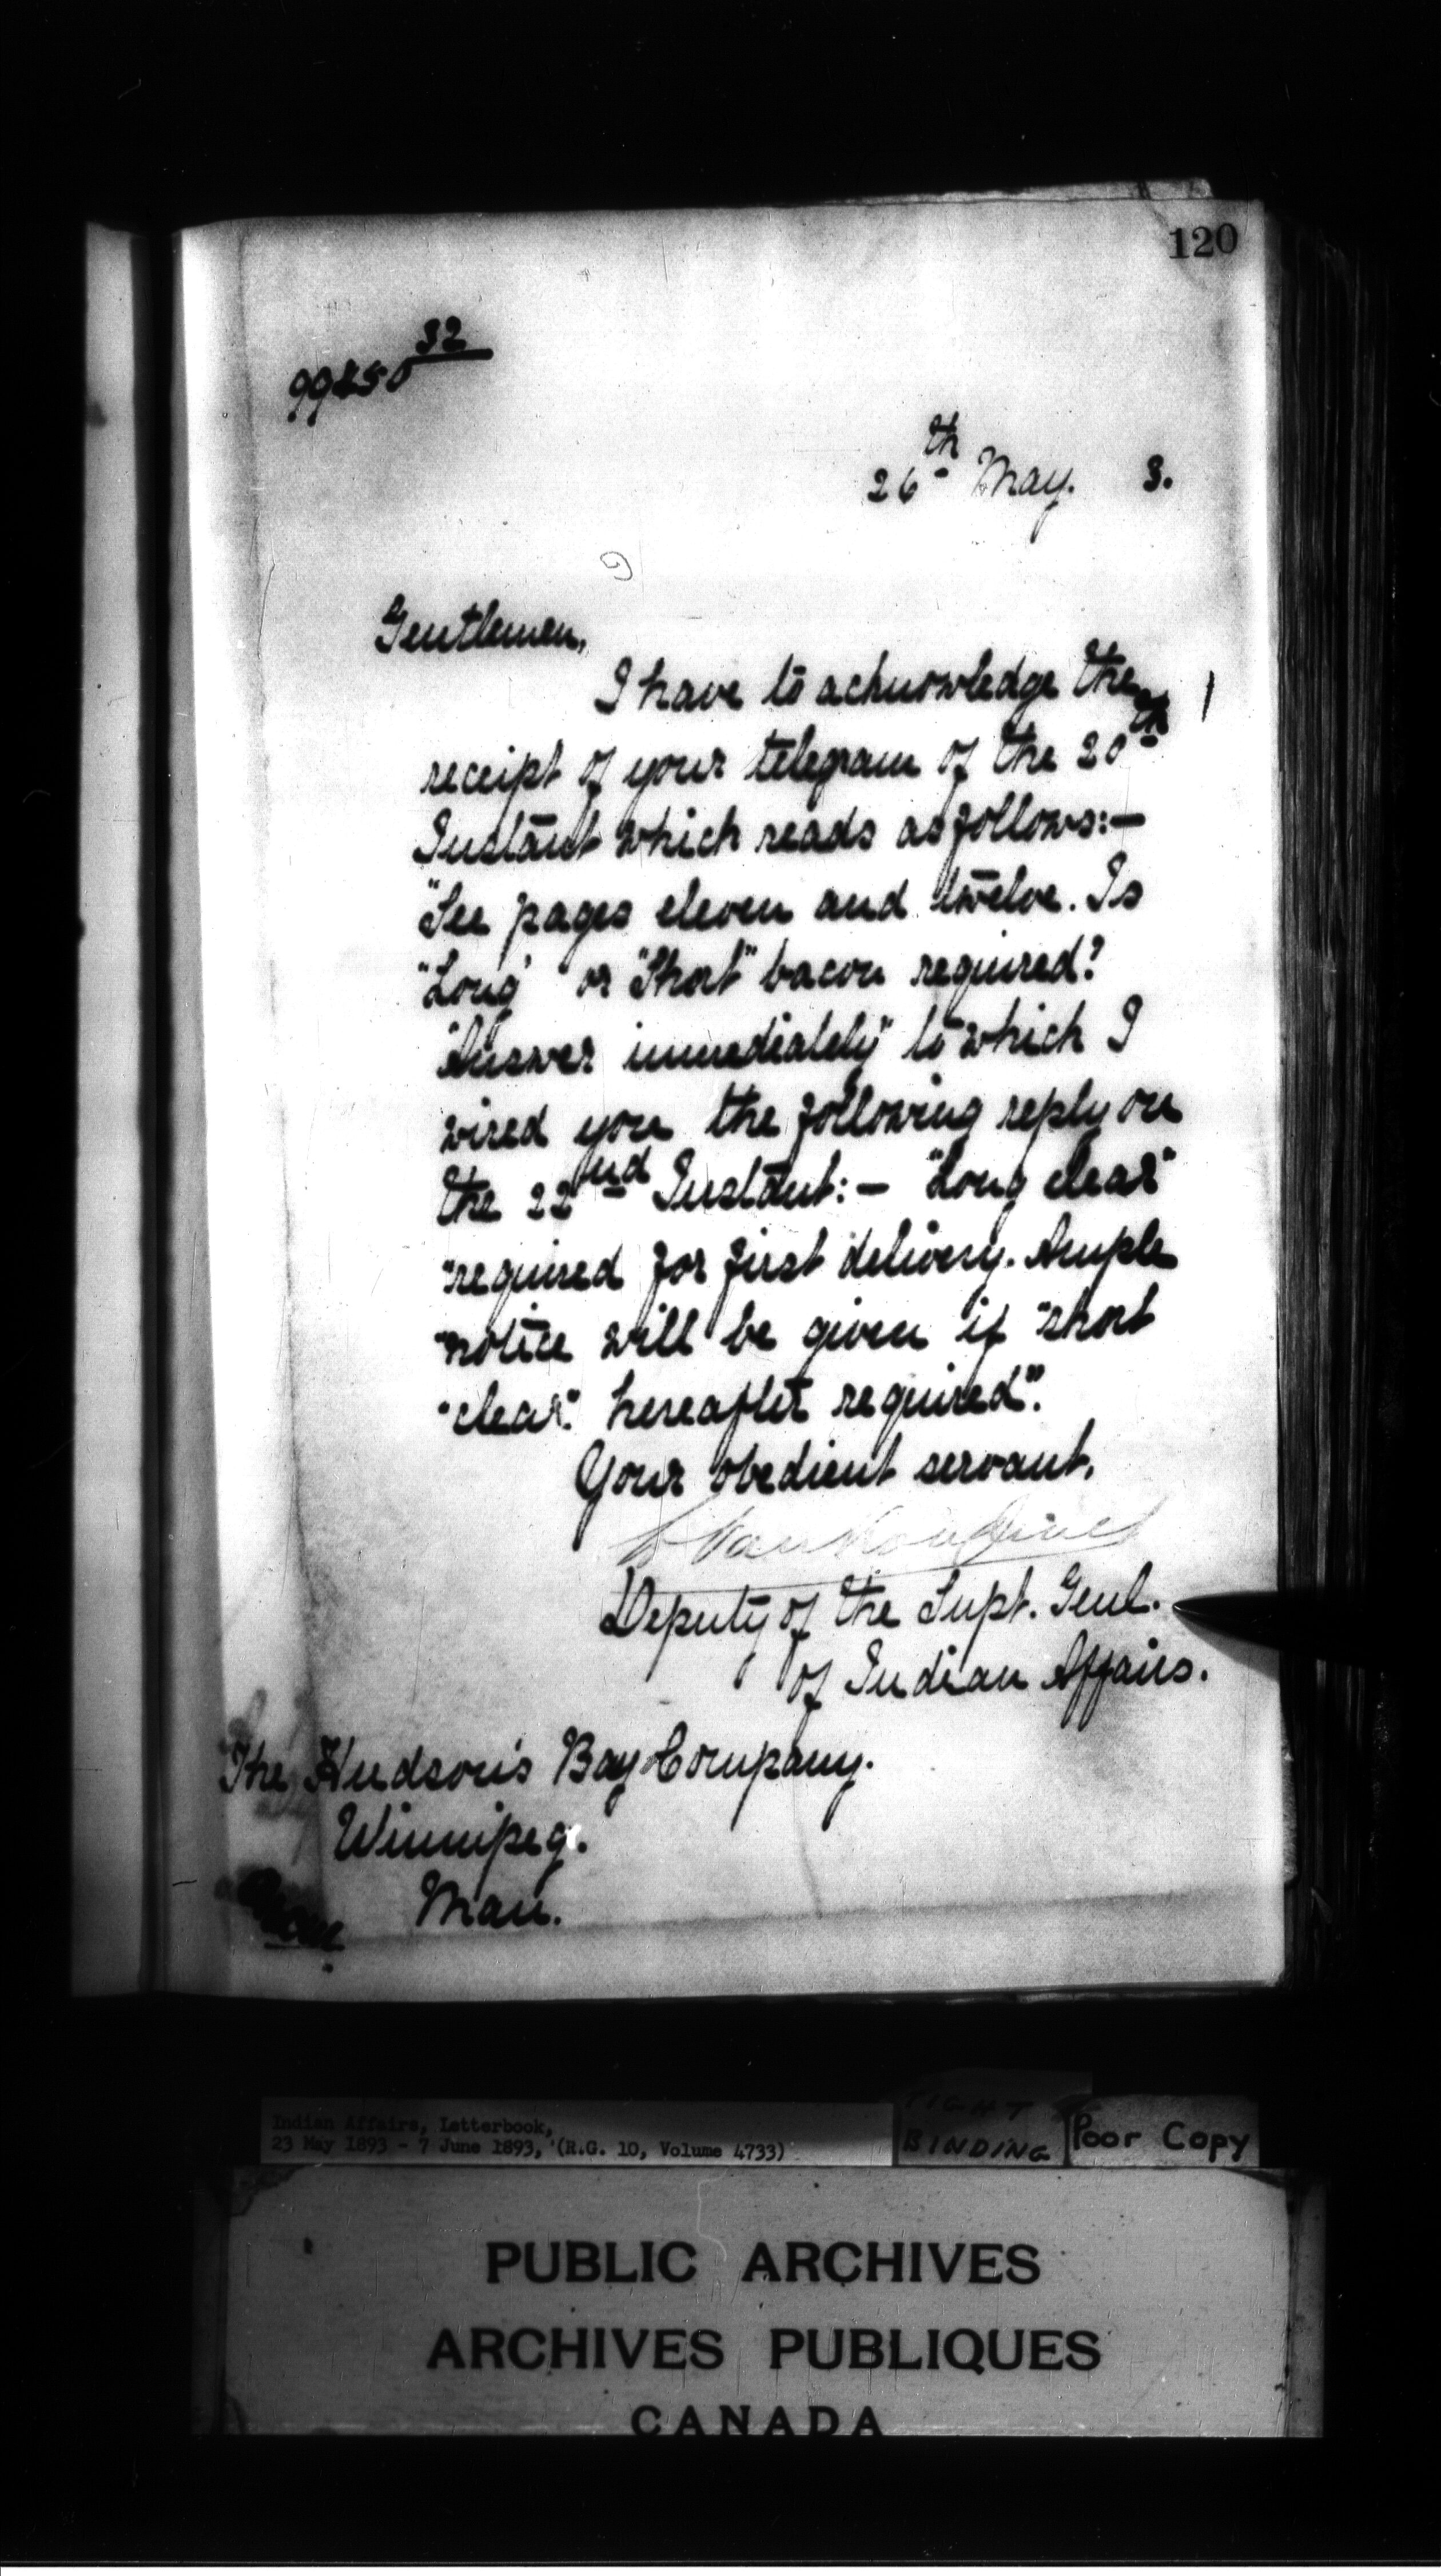 120
32
99250
26th May. 3.
Gentlemen,
I have to acknowledge the
receipt of your telegram of the 20th
Instant which reads as follows:—
"See pages eleven and twelve. Is
"Long" or "Short" bacon required?
"Answer immediately" to which I
wired you the following reply on
the 22nd Instant:— "Long clear"
"required for first delivery. Ample
"notice will be given if "short
"clear" hereafter required".
Your obedient servant,
L Vankoughnet
Deputy of the Supt. Genl.
of Indian Affairs.
The Hudson's Bay Company.
Winnipeg.
Man.
Indian Affairs, Letterbook,
23 May 1893 - 7 June 1893, (R.G. 10, Volume 4733)
TIGHT
BINDING
Poor Copy
PUBLIC ARCHIVES
ARCHIVES PUBLIQUES
CANADA